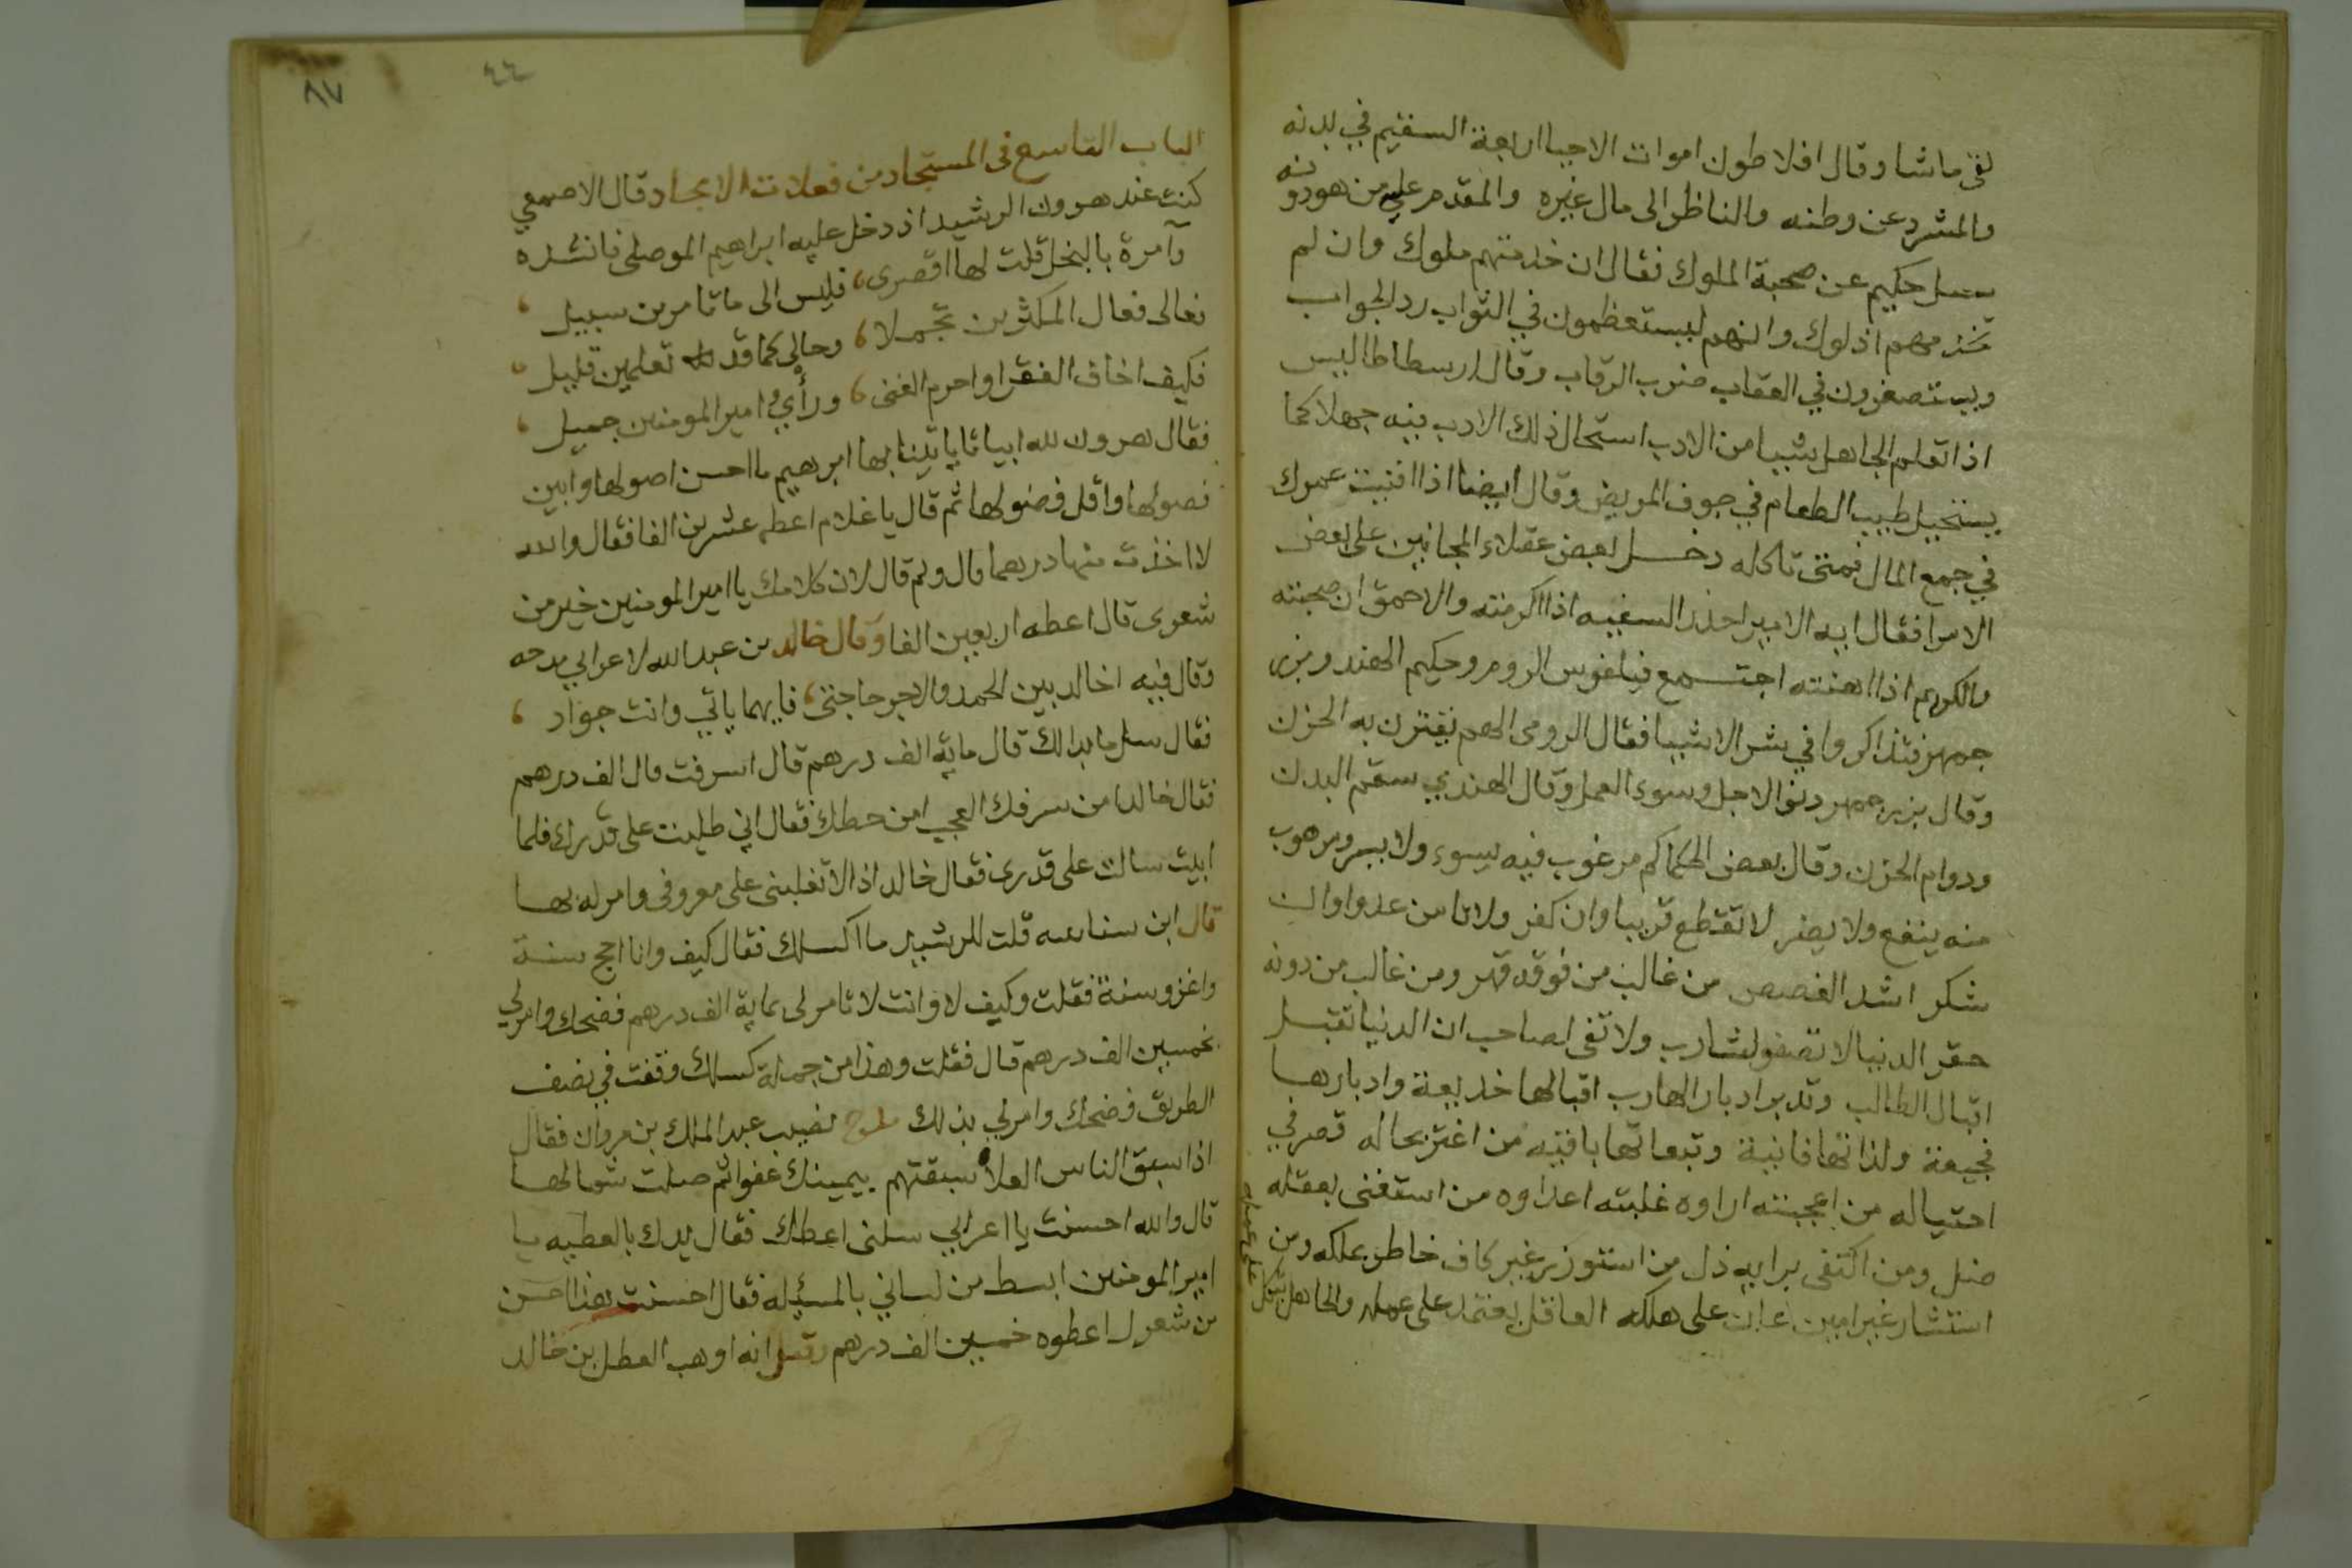 لقى ماشا وقال افلاطون اموات الاحيا اربعة السقيم في بدنه
والمشرد عن وطنه والناظر الى مال غيره والمقدم عليه من هو دونه
سئل حكيم عن صحبة الملوك فقال ان خدمتهم ملوك وان لم
تخدمهم اذلوك وانهم ليستعظمون في الثواب رد الجواب
ويستصغرون في العقاب ضرب الرقاب وقال ارسطاطاليس
اذا تعلم الجاهل شيا من الادب استحال ذلك الادب فيه جهلا كما
يستحيل طيب الطعام في جوف المريض وقال ايضا اذا افنيت عمرك
في جمع المال فمتى تاكله دخل بعض عقلاء المجانين على بعض
الامرا فقال ايه الامير احذر السفيه اذا اكرمته والاحمق ان صحبته
والكريم اذا اهنته اجتمع فيلفوس الروم وحكيم الهند وبزر
جمهر فتذاكروا في شر الاشيا فقال الرومى الهم يقترن به الحزن
وقال بزرجمهر دنو الاجل وسوء العمل وقال الهندي سقم البدن
ودوام الحزن وقال بعض الحكما كم مرغوب فيه يسوء ولا يسر ومرهوب
منه ينفع ولا يضر لا تقطع قريبا وان كفر ولا تامن عدوا وان
شكر اشد الغصص من غالب من فوقه قهر ومن غالب من دونه
حقر الدنيا لا تصفو لشارب ولا تفى لصاحب ان الدنيا تقبل
اقبال الطالب وتدبر ادبار الهارب اقبالها خديعة وادبارها
فجيعة ولذاتها فانية وتبعاتها باقية من اغتر بحاله قصر في
احتياله من اعجبته اراوه غلبته اعداوه من استغنى بعقله
ضل ومن اكتفى برايه ذل من استوزر غير كاف خاطر بملكه ومن
استشار غير امين اعان على هلكه العاقل يعتمد على عمله والجاهل يتكل
على امله
٨٧
٤٤
الباب التاسع فى المستجاد من فعلات الاجواد قال الاصمعي
كنت عند هرون الرشيد اذ دخل عليه ابراهيم الموصلى فانشده
وآمرة بالبخل قلت لها اقصرى، فليس الى ما تامرين سبيل،
فعالى فعال المكثرين تجملا، وحالى كما قد تعلمين قليل،
فكيف اخاف الفقر او احرم الغنى، ورأي امير المومنين جميل،
فقال هرون لله ابياتا ياتينا بها ابرهيم ما احسن اصولها وابين
فصولها واقل فضولها ثم قال يا غلام اعطه عشرين الفا فقال والله
لا اخذت منها درهما قال ولم قال لان كلامك يا امير المومنين خير من
شعرى قال اعطه اربعين الفا وقال خالد بن عبد الله لاعرابي مدحه
وقال فيه اخالد بين الحمد والاجر حاجتى، فايهما ياتي وانت جواد،
فقال سل ما بدا لك قال ماية الف درهم قال اسرفت قال الف درهم
فقال خالد امن سرفك اعجب ام من حطك فقال اني طلبت على قدرك فلما
ابيت سالت على قدرى فقال خالد اذا لا تغلبنى على معروفى وامر له بها
قال ابن قلت للرشيد ما اكسلك فقال كيف وانا احج سنة
واغزو سنة فقلت وكيف لا وانت لا تامر لى بماية الف درهم فضحك وامر لي
بخمسين الف درهم قال فقلت وهذا من جملة كسلك وقفت في نصف
الطريق فضحك وامر لي بذلك مدح نصيب عبد الملك بن مروان فقال
اذا سبق الناس العلا سبقتهم بيمينك عفوا ثم صلت شمالها
قال والله احسنت يا اعرابي سلنى اعطك فقال يدك بالعطيه يا
امير المومنين ابسط من لساني بالمسئله فقال احسنت هذا احسن
من شعرك اعطوه خمسين الف درهم وقيل انه اوهب الفضل بن خالد